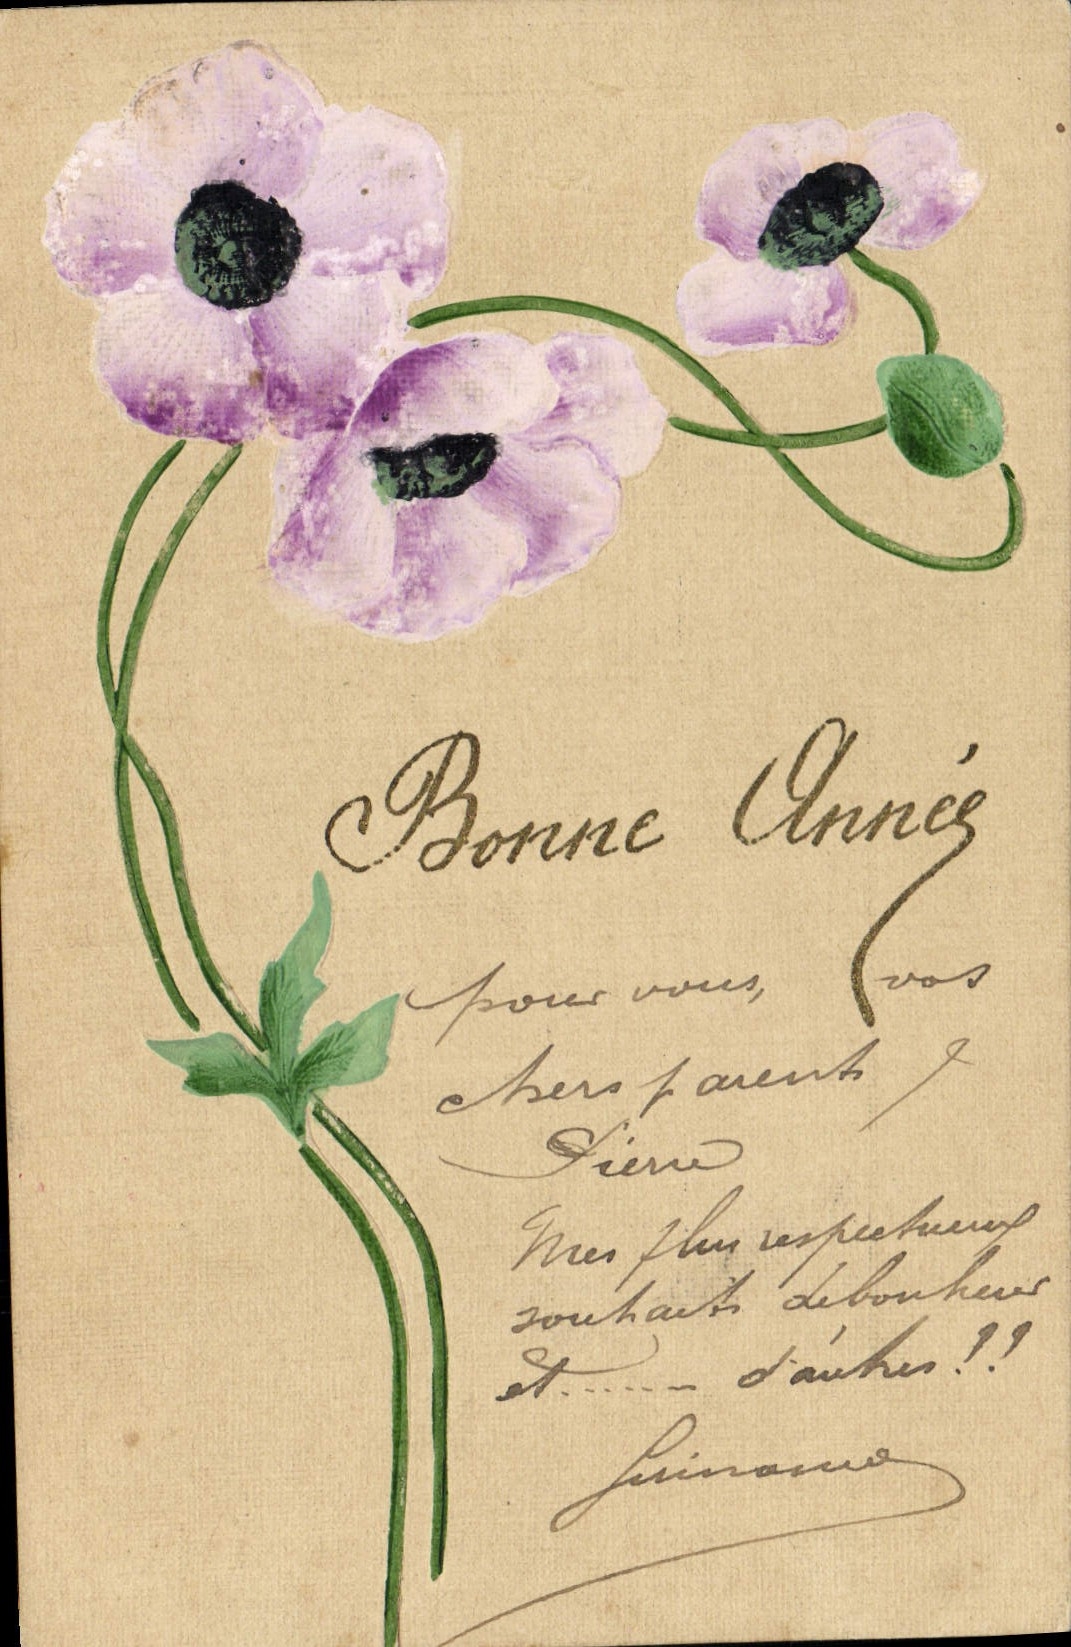 Bonne Année
pour vous, vos
chers parents &
Pierre
Mes plus respectueux
souhaits de bonheur
et ...... d'autres !!